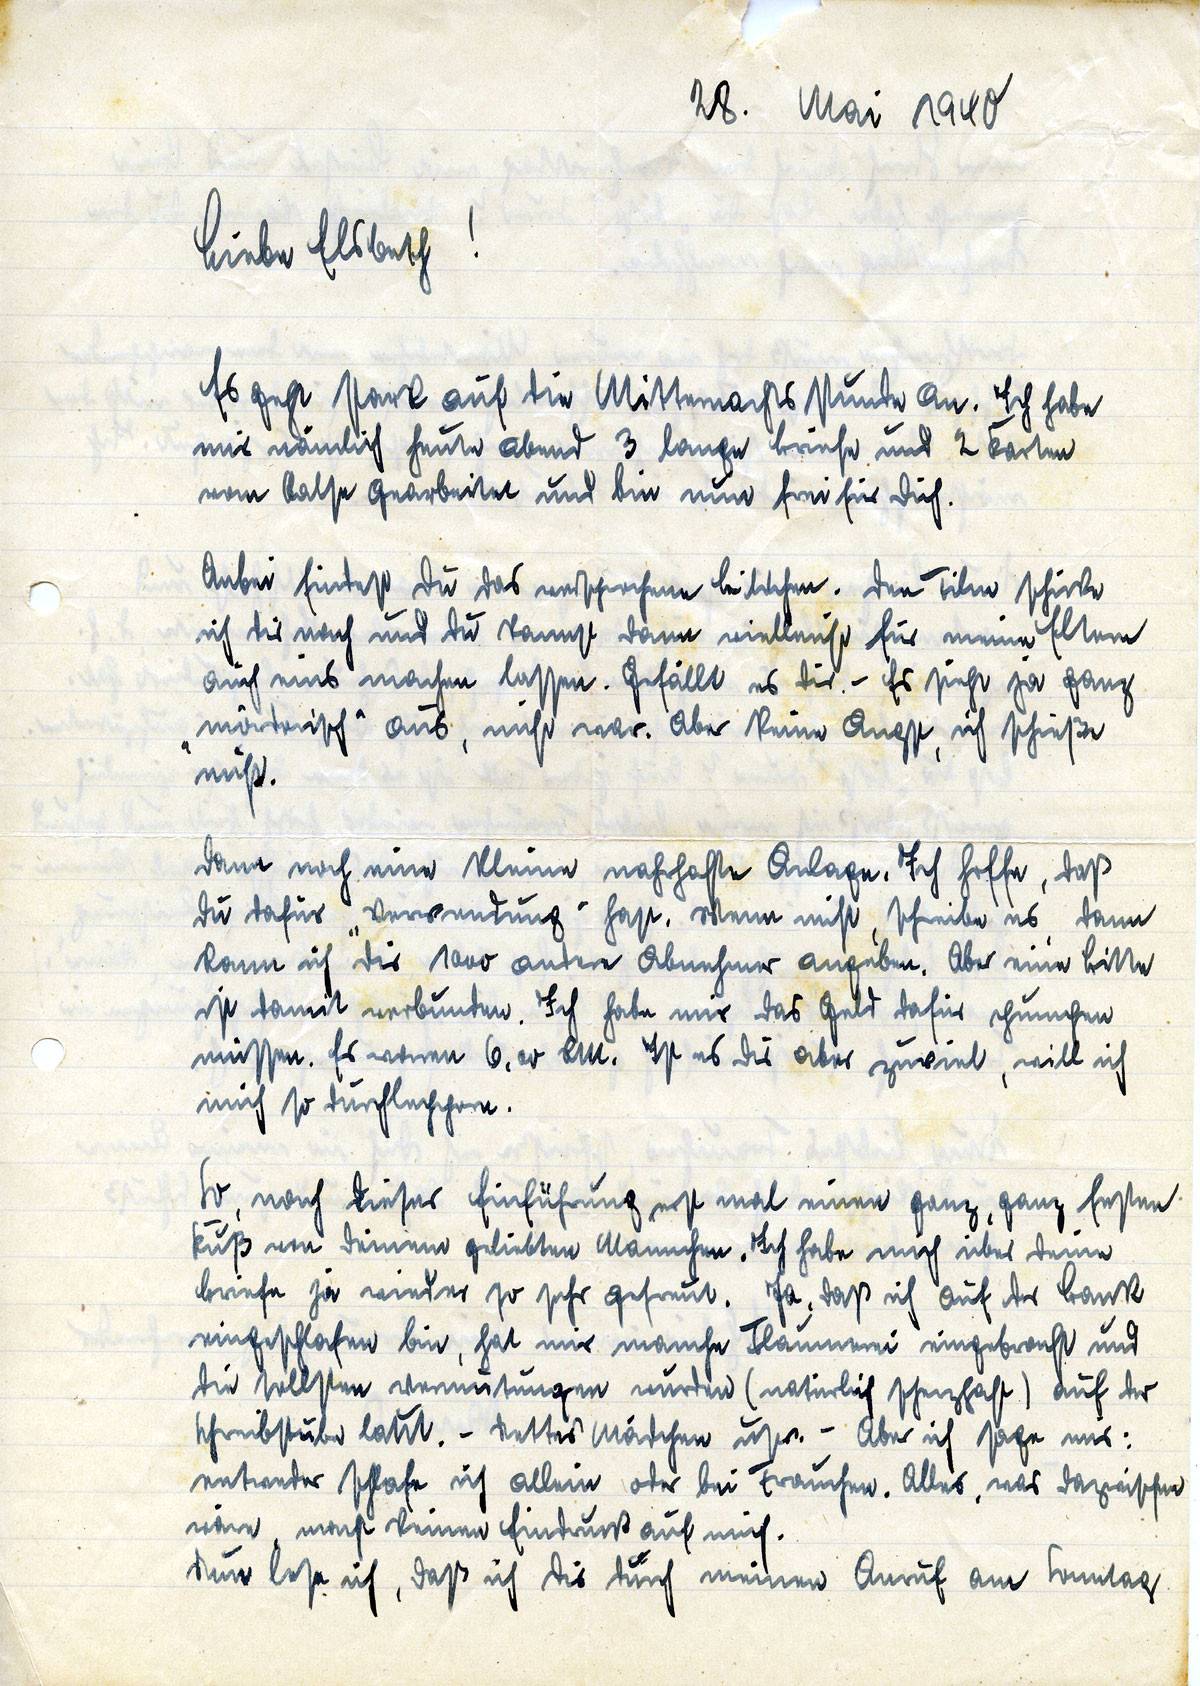 28. Mai 1940
Liebe Elsbeth!
Es geht stark auf die Mitternachtsstunde an. Ich habe
mir nämlich heute abend 3 lange Briefe und 2 Karten
vom Halse gearbeitet und bin nun frei für Dich.
Anbei findest Du das versprochene Bildchen. Den Film schicke
ich dir noch und Du kannst dann vielleicht für meine Eltern
auch eins machen lassen. Gefällt es dir. - Es sieht ja ganz
„mörderisch“ aus, nicht war. Aber keine Angst, ich schieße
nicht.
Dann noch eine kleine nahrhafte Anlage. Ich hoffe, daß
Du dafür „Verwendung“ hast. Wenn nicht, schreibe es, dann
kann ich dir 1000 andere Abnehmer angeben. Aber eine Bitte
ist damit verbunden. Ich habe mir das Geld dafür pumpen
müssen. Es waren 6,00 RM. Ist es dir aber zuviel, will ich
mich so durchläppern.
So, nach dieser Einführung erst mal einen ganz, ganz festen
Kuß von Deinem geliebten Mannchen. Ich habe mich über deine
Briefe ja wieder so sehr gefreut. Ja, daß ich auf der Bank
eingeschlafen bin, hat mir manche Flaumerei eingebracht und
die tollsten Vermutungen wurden (natürlich scherzhaft) auf der
Schreibstube laut. - Nettes Mädchen usw. - Aber ich sage mir:
entweder schlafe ich allein oder bei Frauchen. Alles, was dazwischen
wäre, macht keinen Eindruck auf mich.
Nun lese ich, daß ich dir durch meinen Anruf am Sonntag